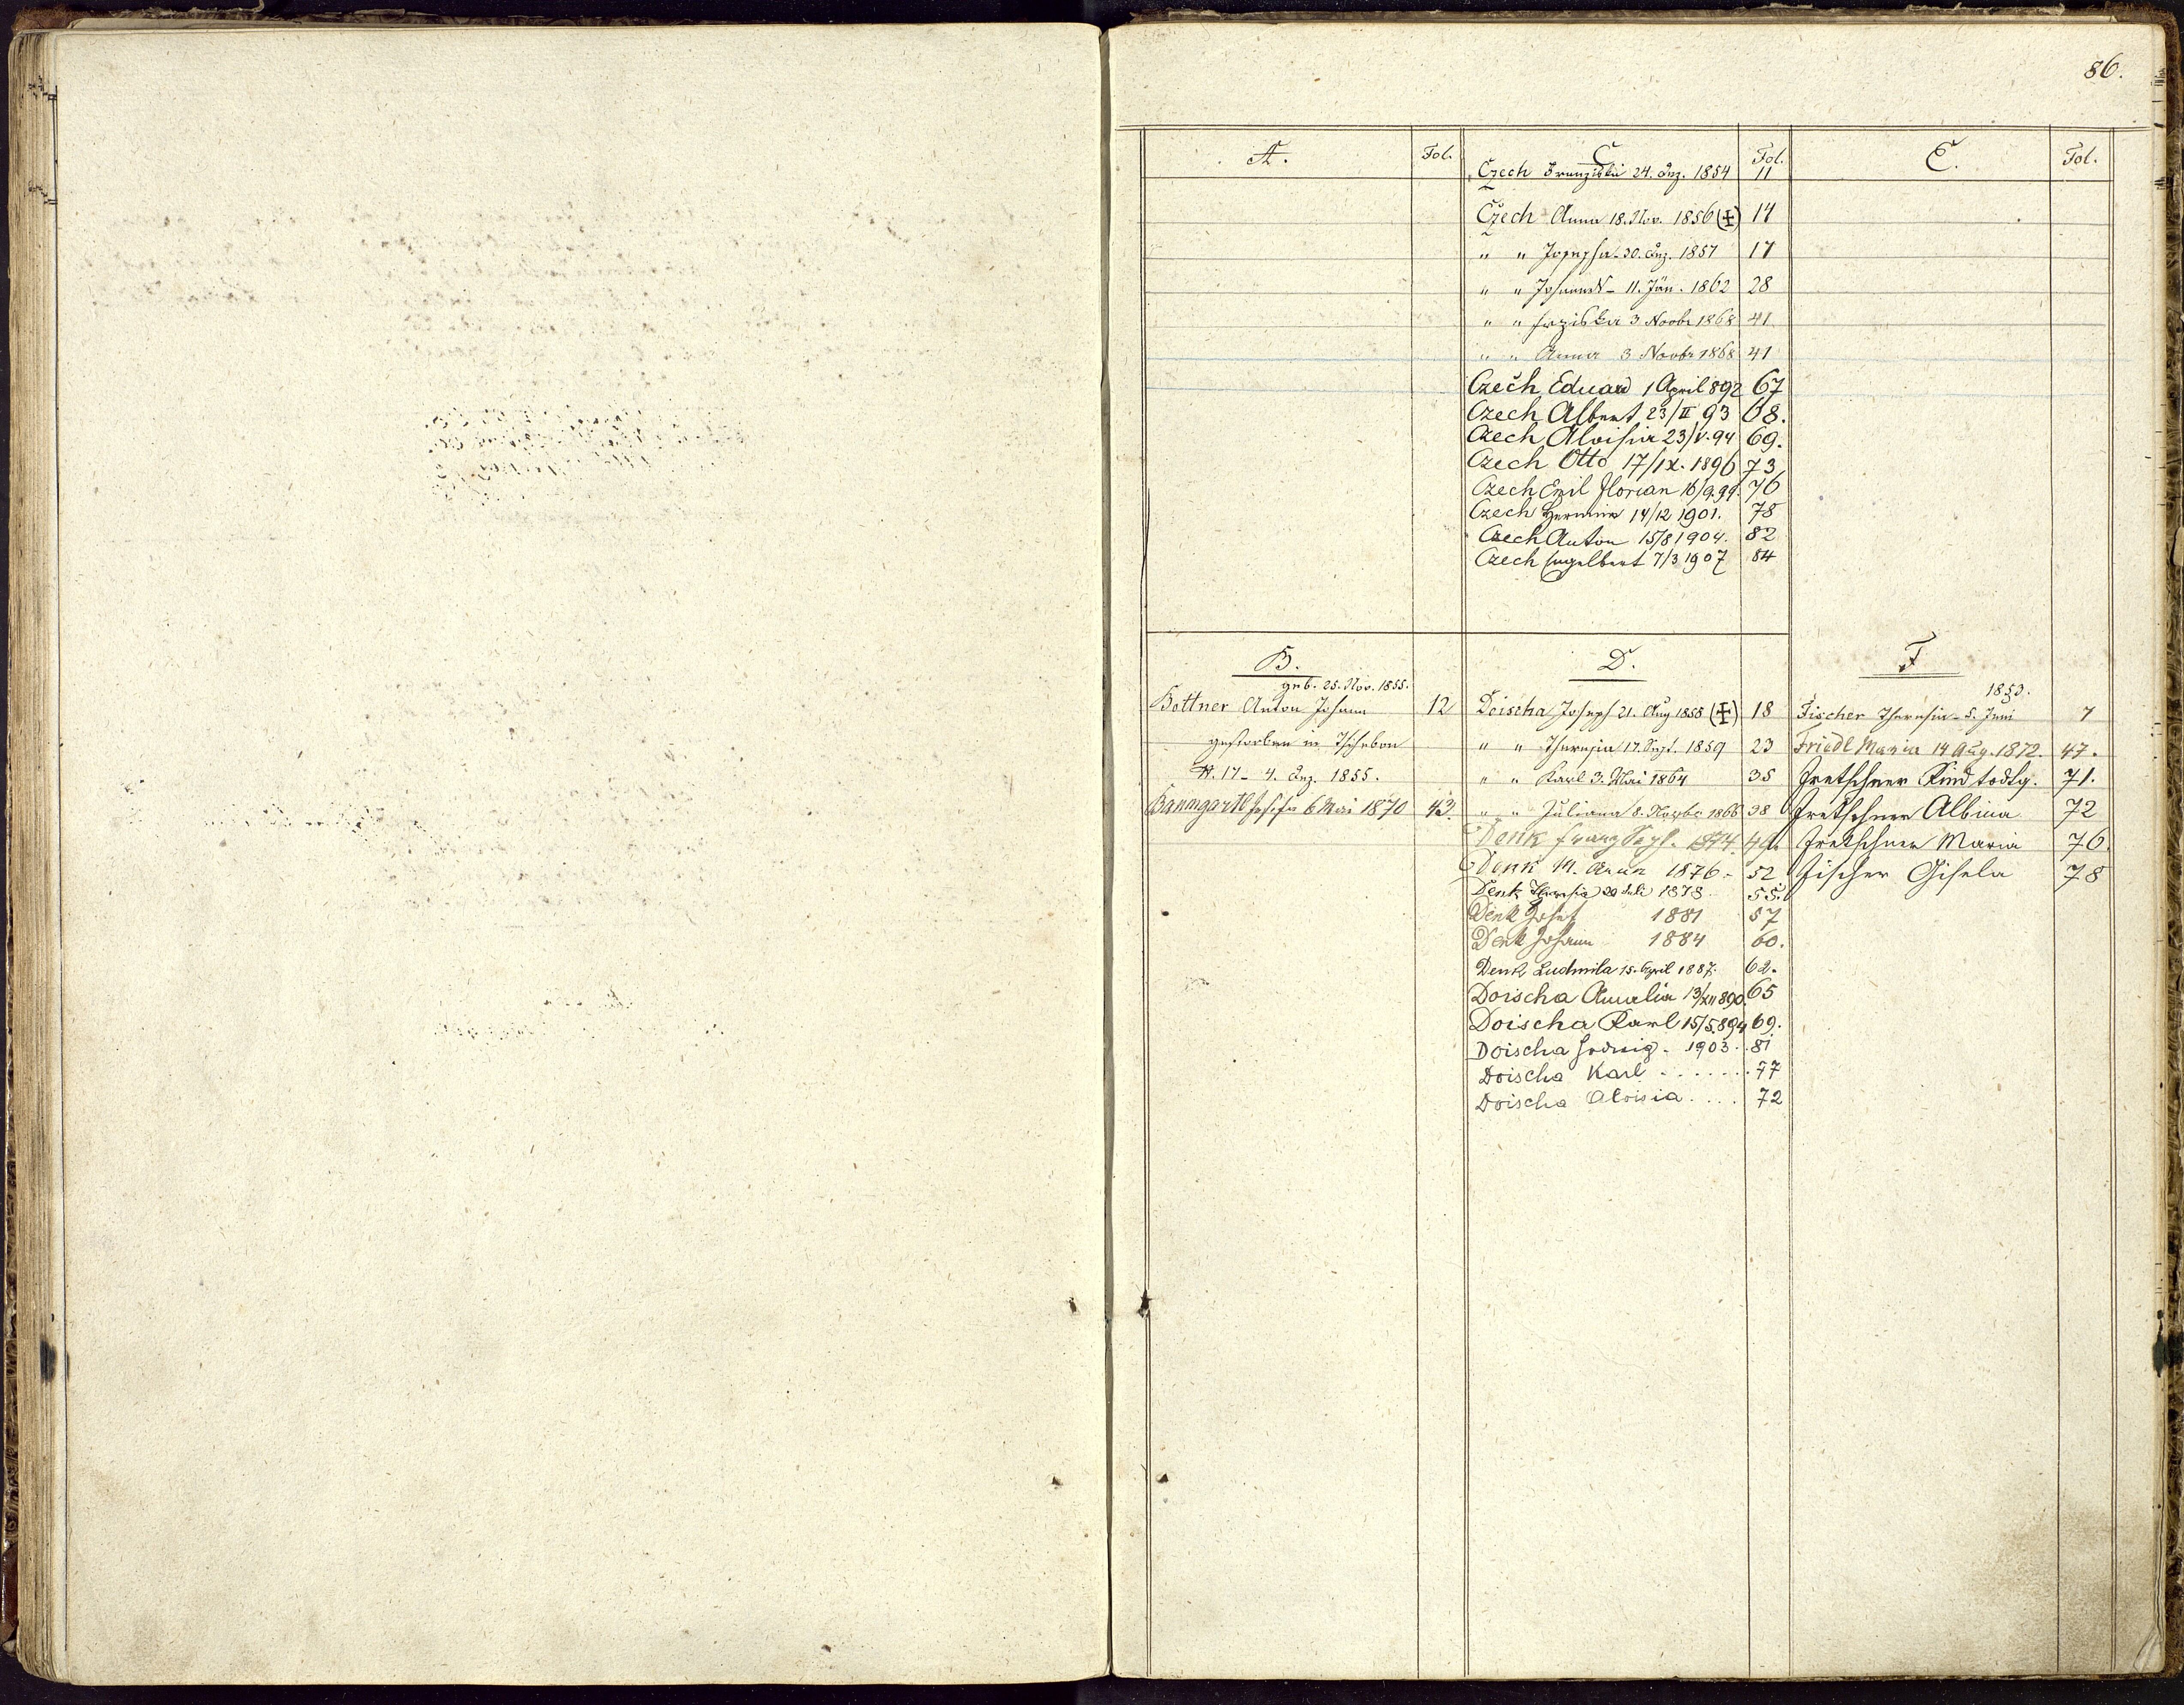 86.
A. Fol.
C. Fol.
Czech Franziska 24. Dez. 1854 11
Czech Anna 18. Nov. 1856 (✠) 14
" " Josepha 30. Dez. 1857 17
" " Johann 11. Jän. 1862 28
" " Frziska 3 Novbr 1868 41
" " Anna 3 Novbr 1868 41
Czech Eduard 1 April 892 67
Czech Albert 23/II 93 68.
Czech Aloisia 23/V. 94 69.
Czech Otto 17/IX. 1896 73
Czech Emil Florian 16/9.99. 76
Czech Hermine 14/12 1901. 78
Czech Anton 15/8 1904. 82
Czech Engelbert 7/3 1907 84
E. Fol.
B.
geb. 25. Nov. 1855.
Bottner Anton Johann 12
gestorben in Tschebon
N. 17 - 4. Dez. 1855.
Baumgartl Josefa 6 Mai 1870 43.
D.
Doischa Joseph 21. Aug 1858 (✠) 18
" " Theresia 17. Sept. 1859 23
" " Karl 3. Mai 1864 35
" " Juliana 8. Novbr 1866 38
Denk Franz Sept. 1874. 49.
Denk M. Anna 1876 - 52
Denk Theresia 20 Juli 1878. 55.
Denk Josef 1881 57
Denk Johann 1884 60.
Denk Ludmila 15. April 1887. 62.
Doischa Amalia 13/XII 890 65
Doischa Karl 15/5.894 69.
Doischa Hedwig - 1903. 81
Doischa Karl ....... 77
Doischa Aloisia .... 72
F
1853.
Fischer Theresia - 5. Juni 7
Friedl Maria 14 Aug. 1872. 47.
Fretschner Kind todtg. 71.
Fretschner Albina 72
Fretschner Maria 76.
Fischer Gisela 78